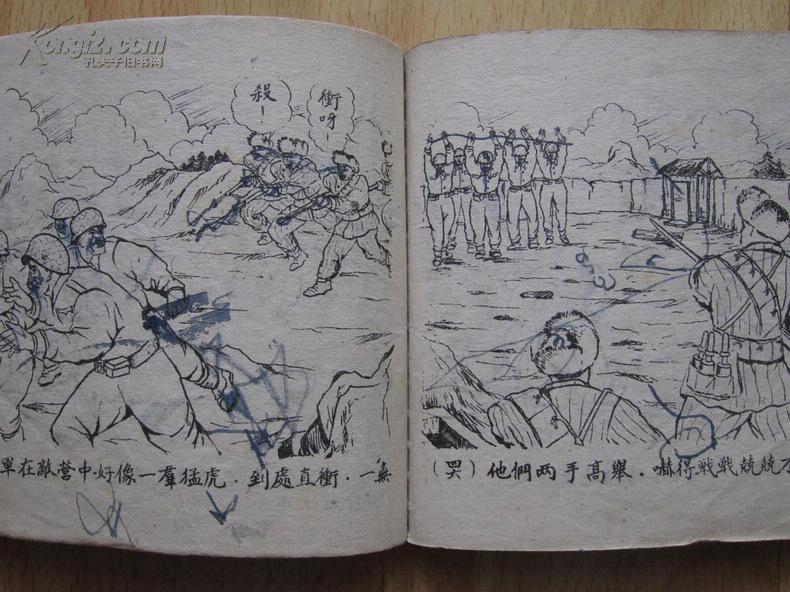 Kongfz.com
孔夫子旧书网
殺！
衝呀！
軍在敵营中好像一羣猛虎．到處直衝．一無
（哭）他們两手高舉．嚇得戰戰兢兢